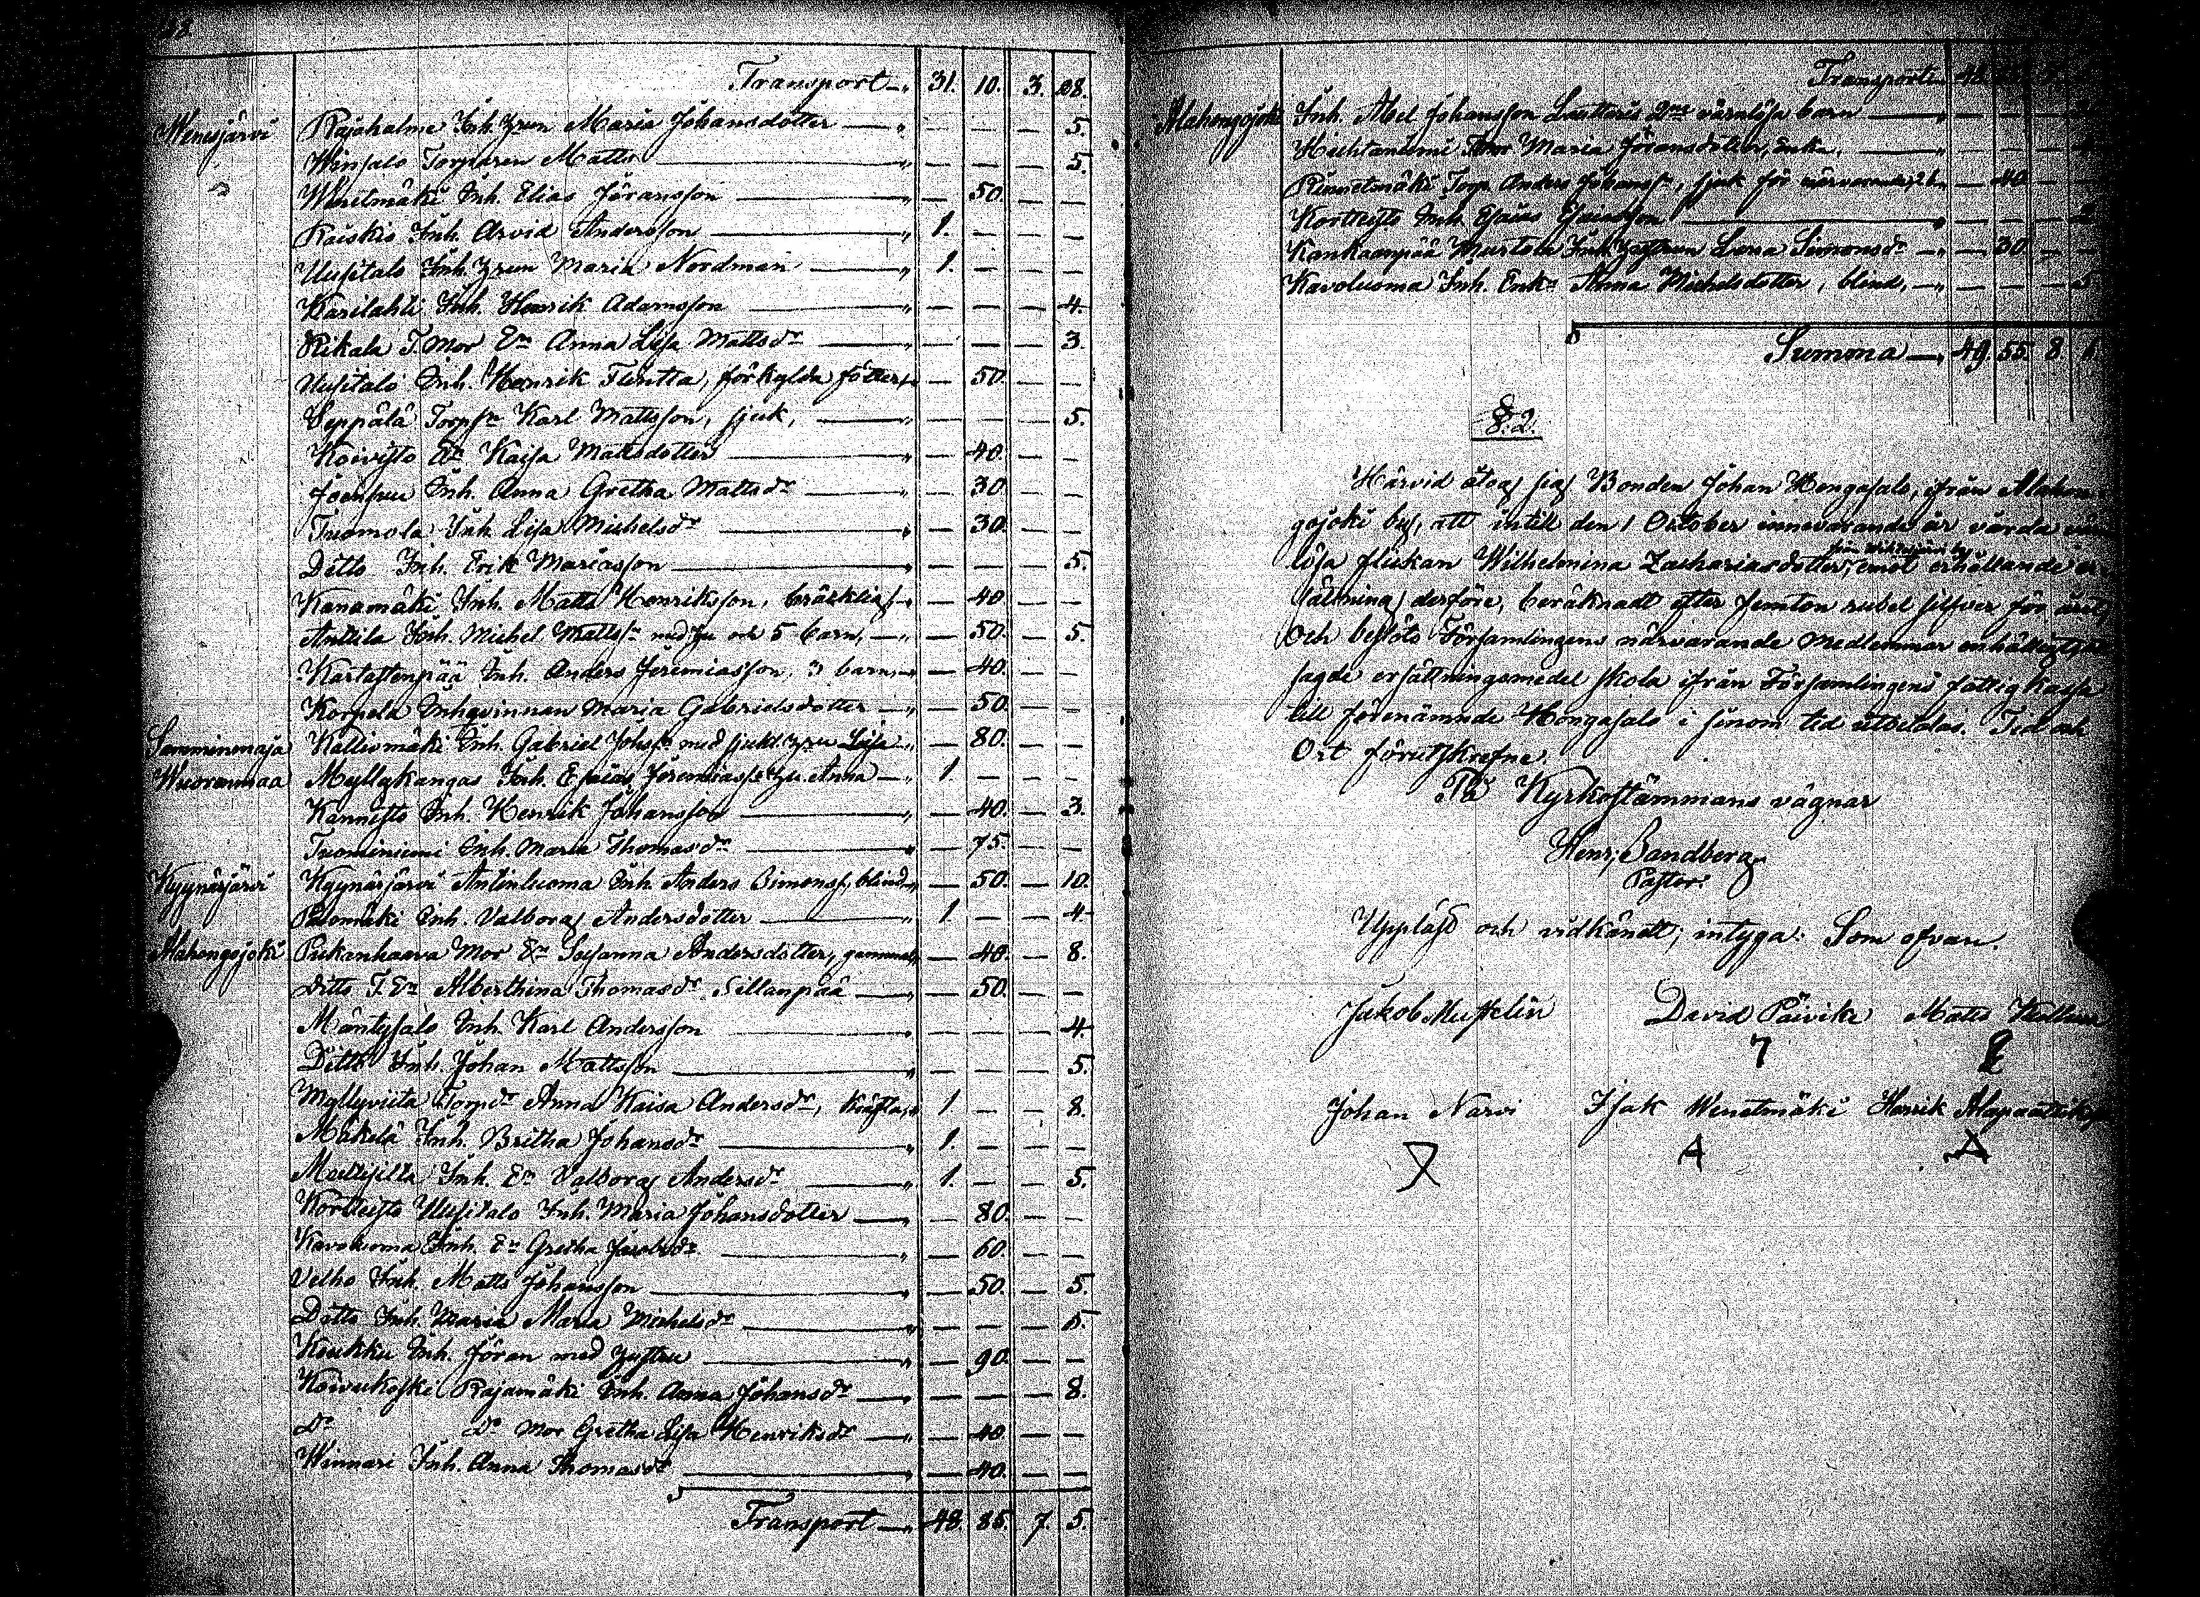 Transport 31. 10. 3. 28.
Wenesjärvi Rajahalme Inh. hru Maria Johansdotter — — — 5.
Winsalo Torparen Matts — — — 5.
Inh. Elias Jöransson — 50. — —
Kaiskis Inh. Arvid Andersson 1. — — —
Uusitalo Inh. hrun Maria Nordman 1. — — —
Karilahti Inh. Henrik Adamsson — — — 4.
Rikala T. Mor Enk. Anna Lisa Mattsdr — — — 3.
Uusitalo Inh. Henrik Fluntta, förkylda fötter — 50. — —
Seppälä Karl Mattsson, sjuk, — — — 5.
Koivisto Kaisa Mattsdotter — 40. — —
Joensuu Inh. Anna Gretha Mattsdr — 30. — —
Tuomola Inh. Lisa Michelsdr — 30. — —
Ditto Inh. Erik Mariasson — — — 5.
Kanamäki Inh. Matts Henriksson, bräcklig, — 40 — —
Anttila Inh. Michel Mattss. med hu och 5 barn, — 50. — 5.
Inh. Anders Jeremiasson, 3 barn — 40. — —
Korpela Inhqvinnan Maria Gabrielsdotter — 50. — —
Samminmaja Kalliomäki Inh. Gabriel Johss. med sjukl. hru Lisa — 80. — —
Wuorenmaa Myllykangas Inh. Esaias Jeremiass. hu Anna 1. — — —
Kannisto Inh. Henrik Johansson — 40. — 3.
Tuominiemi Inh. Maria Thomasdr — 75. — —
Kyynärjärvi Kyynärjärvi Antinluoma Inh. Anders Simonss., blind — 50. — 10.
Palomäki Inh. Valborg Andersdotter 1. — — 4.
Alahongojoki Pukanhaara Mor Susanna Andersdotter, gammal — 40. — 8.
Ditto T. Alberthina Thomasdr Sillanpää — 50. — —
Mäntysalo Inh. Karl Andersson — — — 4.
Ditto Inh. Johan Mattsson — — — 5.
Myllyviita Torpdr Anna Kaisa Andersdr, 1. — — 8.
Mäkelä Inh. Britha Johansdr 1. — — —
Inh. Valborg Andersdr 1. — — 5.
Korttisto Uusitalo Inh. Maria Johansdotter — 80. — —
Kavoluoma Inh. Gretha Jacobsdr — 60. — —
Velho Inh. Matts Johansson — 50. — 5.
Ditto Inh. Maria Maria Michelsdr — — — 5.
Koukku Inh. Jöran med hustru — 90. — —
Koivukoski Rajamäki Inh. Anna Johansdr — — — 8.
Do Do Mor Gretha Lisa Henriksdr — 40 — —
Winnari Inh. Anna Thomasdr — 40. — —
Transport 48. 85. 7. 5.
Transport 48.
Alahongojoki Inh. Abel Johansson 2ne värnlösa barn
Maria Jöransdotter, Enka,
Torp. Anders Johanss., sjuk för — 40
Korttisto Inh. Esaias Esaiasson
Kankaanpää Martola Inh. Lena Simonsdr — 30
Kavoluoma Inh. Enk. Anna Michelsdotter, blind, — — — 5
Summa 49. 55. 8.
§. 2.
Härvid åtog sig Bonden Johan Hongasalo, ifrån Alahon-
gojoki by, att intill den 1 October innevarande år vårda
lösa flickan Wilhelmina Zachariasdotter, emot erhållande
sättning derföre, beräknadt efter femton rubel silfver för året,
och beslöts Församlingens närvarande medlemmar enhälligt
sagde ersättningsmedel skola ifrån Församlingens fattigkassa
till förenämnde Hongasalo i sinom tid utbetalas. Tid och
Ort förutskrefne.
På Kyrkostämmans vägnar
Henr. Sandberg
Pastor.
Uppläst och vidkändt; intyga: Som ofvan.
Jakob David Päivike Matts
Johan Narvi Isak Wenetmäki Henrik